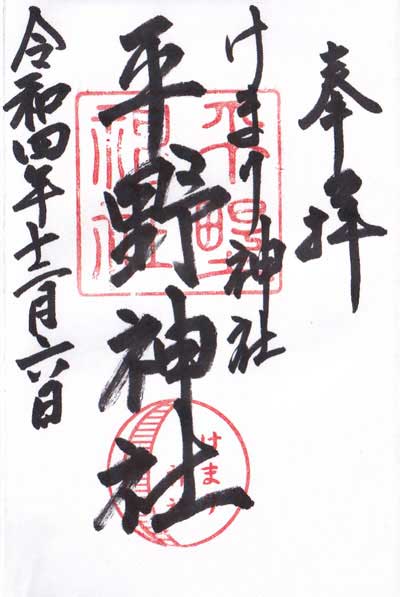 奉拝
けまり神社
平野
神社
平野神社
けまり
令和四年十二月六日